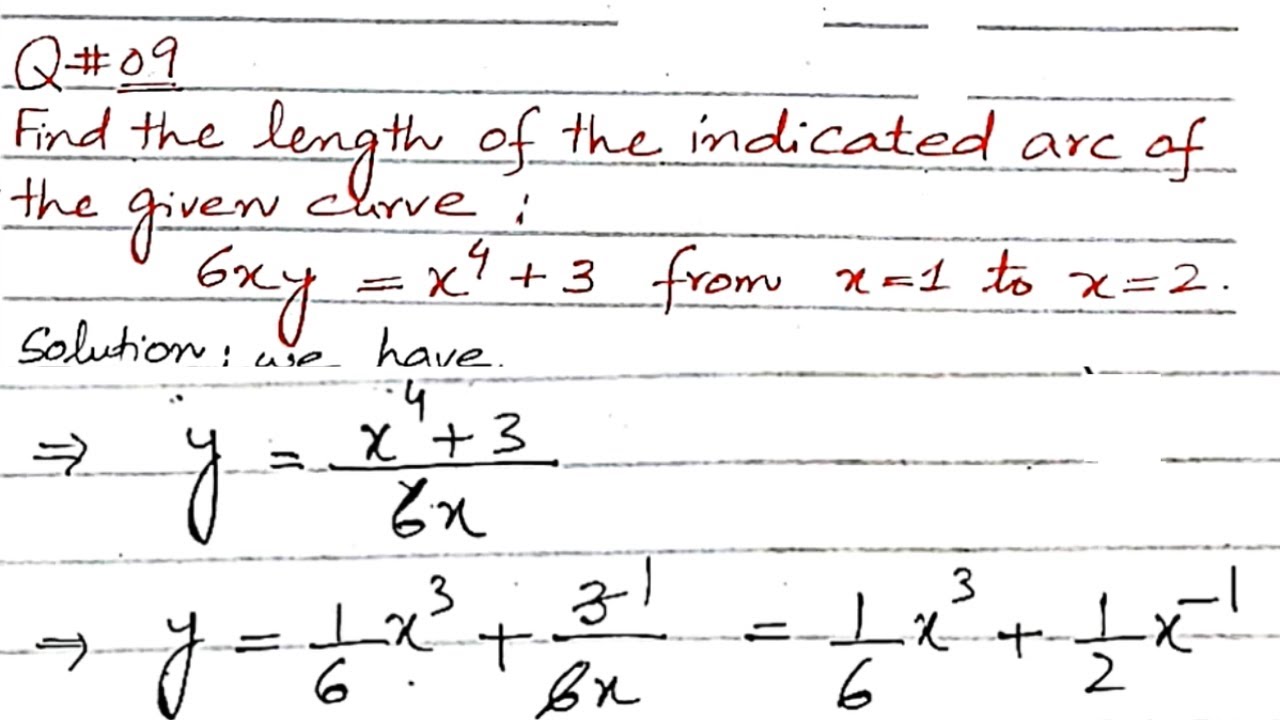 Q#09
Find the length of the indicated arc of
the given curve :
6xy = x⁴ + 3 from x=1 to x=2.
Solution : we have
⇒ y = (x⁴ + 3)/(6x)
⇒ y = 1/6 x³ + 3 1/(6x) = 1/6 x³ + 1/2 x⁻¹